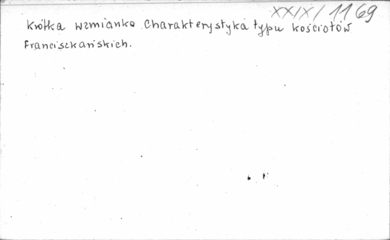 XXIX/1169
Krótka wzmianka. Charakterystyka typu kościołów
Franciszkańskich.